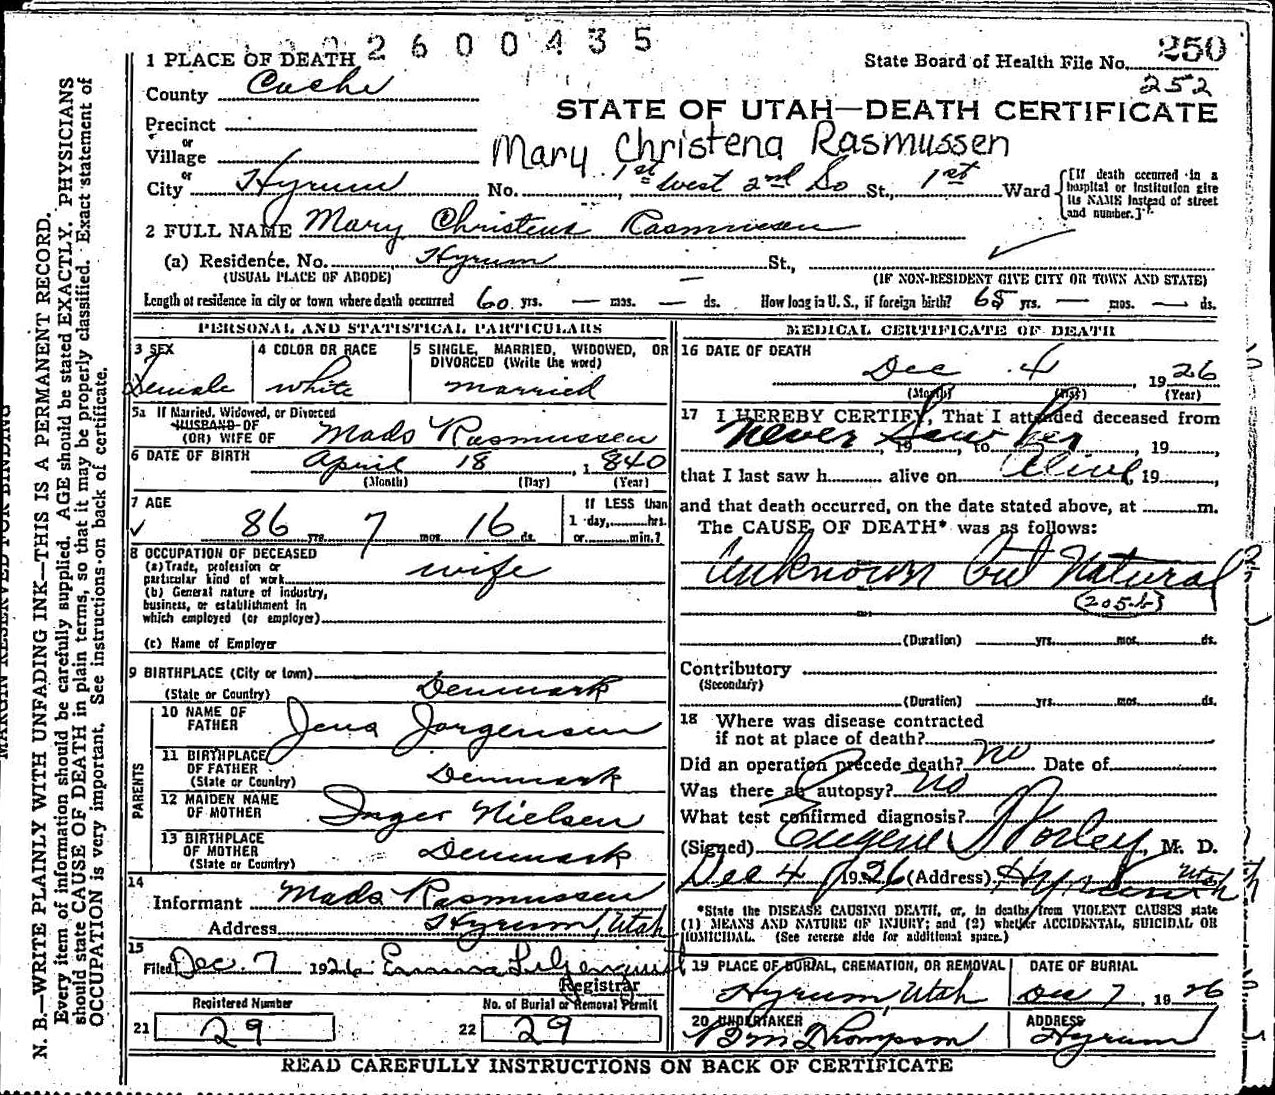 2600435
250
1 PLACE OF DEATH
State Board of Health File No.
252
County Cache
STATE OF UTAH—DEATH CERTIFICATE
Precinct
or
Village
Mary Christena Rasmussen
or
City Hyrum No. 1st West 2nd So St., 1st Ward
[If death occurred in a hospital or institution give its NAME instead of street and number.]
2 FULL NAME Mary Christena Rasmussen
(a) Residence, No. Hyrum St.,
(USUAL PLACE OF ABODE) (IF NON-RESIDENT GIVE CITY OR TOWN AND STATE)
Length of residence in city or town where death occurred 60 yrs. — mos. — ds. How long in U. S., if foreign birth? 65 yrs. — mos. — ds.
PERSONAL AND STATISTICAL PARTICULARS
3 SEX
Female
4 COLOR OR RACE
white
5 SINGLE, MARRIED, WIDOWED, OR DIVORCED (Write the word)
married
5a If Married, Widowed, or Divorced
HUSBAND OF
(OR) WIFE OF Mads Rasmussen
6 DATE OF BIRTH April 18, 1840
(Month) (Day) (Year)
7 AGE
86 yrs. 7 mos. 16 ds.
If LESS than
1 day, hrs.
or min.?
8 OCCUPATION OF DECEASED
(a) Trade, profession or
particular kind of work wife
(b) General nature of industry,
business, or establishment in
which employed (or employer)
(c) Name of Employer
9 BIRTHPLACE (City or town)
(State or Country) Denmark
PARENTS
10 NAME OF FATHER Jens Jorgensen
11 BIRTHPLACE OF FATHER
(State or Country) Denmark
12 MAIDEN NAME OF MOTHER Inger Nielsen
13 BIRTHPLACE OF MOTHER
(State or Country) Denmark
14
Informant Mads Rasmussen
Address Hyrum, Utah
15
Filed Dec. 7 1926 Emma Liljenquist
Registrar
Registered Number
21 29
No. of Burial or Removal Permit
22 29
MEDICAL CERTIFICATE OF DEATH
16 DATE OF DEATH
Dec 4, 1926
(Month) (Day) (Year)
17 I HEREBY CERTIFY, That I attended deceased from
Never Saw her, 19, to, 19
that I last saw h alive on Alive, 19,
and that death occurred, on the date stated above, at m.
The CAUSE OF DEATH* was as follows:
Unknown but Natural
(205-b)
(Duration) yrs. mos. ds.
Contributory
(Secondary)
(Duration) yrs. mos. ds.
18 Where was disease contracted
if not at place of death?
Did an operation precede death? no Date of
Was there an autopsy? no
What test confirmed diagnosis?
(Signed) Eugene Worley, M. D.
Dec 4 1926 (Address) Hyrum Utah
*State the DISEASE CAUSING DEATH, or, in deaths from VIOLENT CAUSES state
(1) MEANS AND NATURE OF INJURY; and (2) whether ACCIDENTAL, SUICIDAL OR
HOMICIDAL. (See reverse side for additional space.)
19 PLACE OF BURIAL, CREMATION, OR REMOVAL
Hyrum, Utah
DATE OF BURIAL
Dec 7, 1926
20 UNDERTAKER
Thompson
ADDRESS
Hyrum
READ CAREFULLY INSTRUCTIONS ON BACK OF CERTIFICATE
MARGIN RESERVED FOR BINDING
N. B.—WRITE PLAINLY WITH UNFADING INK—THIS IS A PERMANENT RECORD.
Every item of information should be carefully supplied. AGE should be stated EXACTLY. PHYSICIANS
should state CAUSE OF DEATH in plain terms, so that it may be properly classified. Exact statement of
OCCUPATION is very important. See instructions on back of certificate.